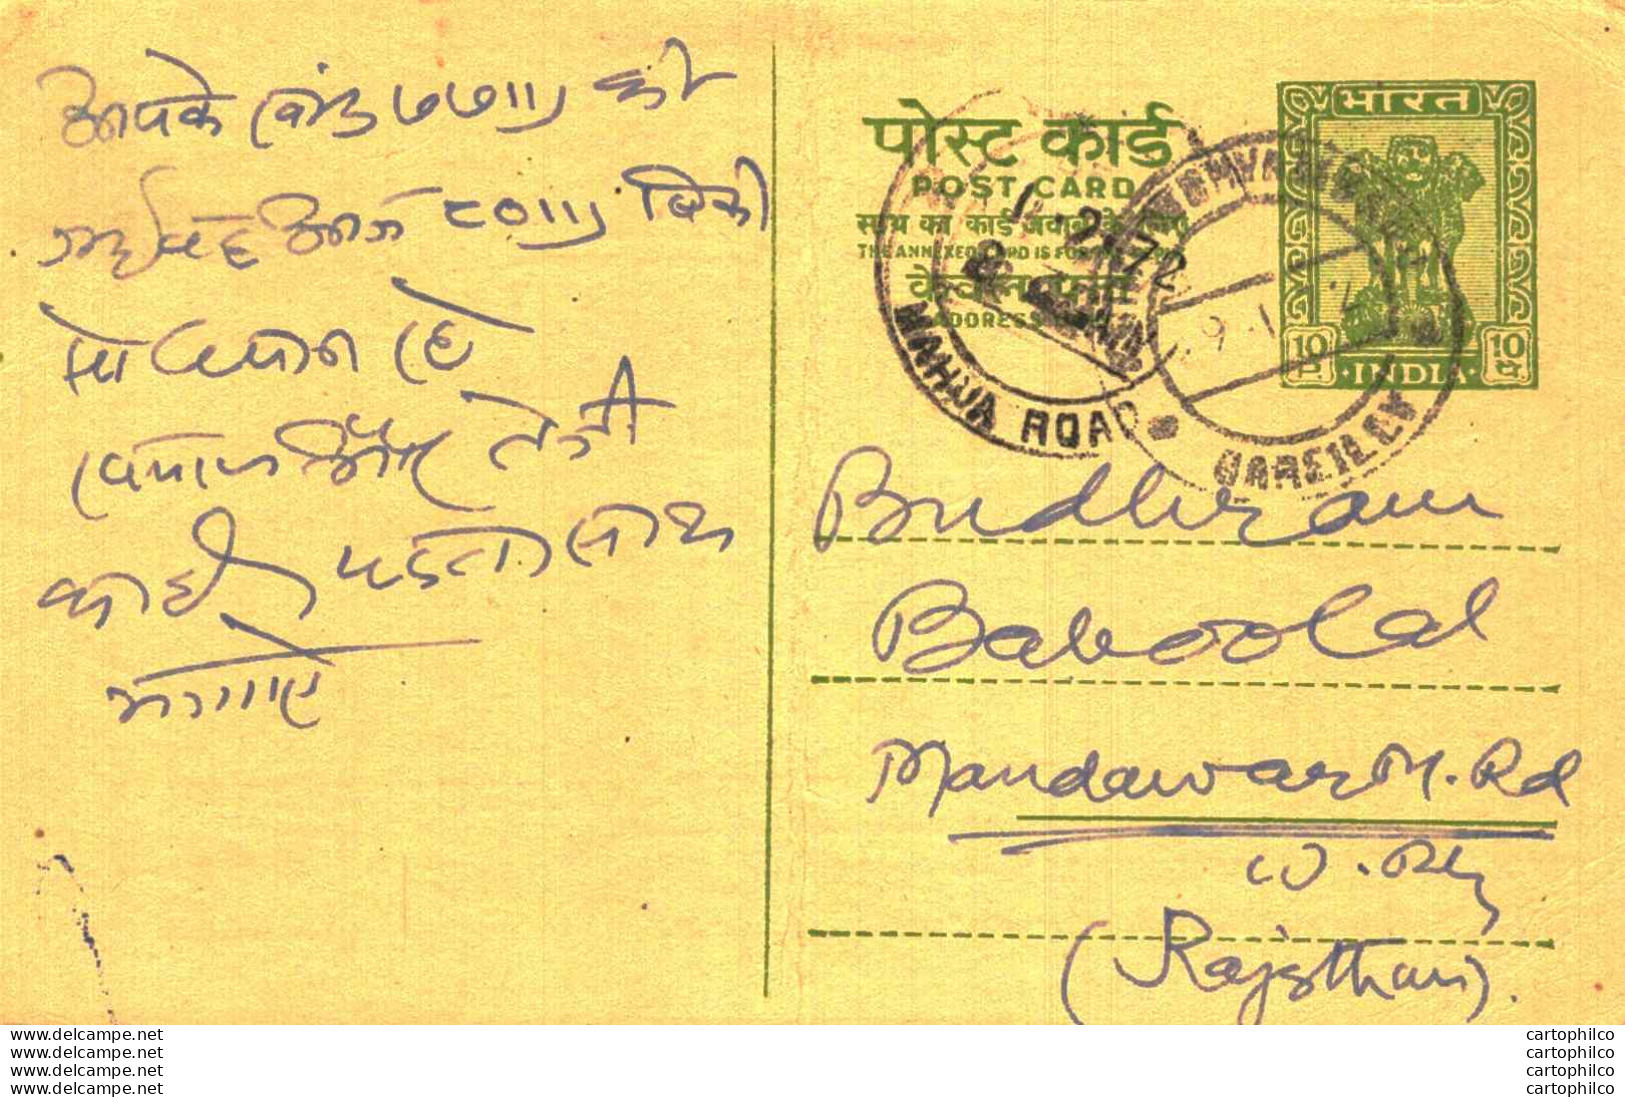 आपके खांड ७७॥) की
गई वह आज ८०॥) बिकी
सो ध्यान रहे
और तेजी
कोई पड़ता सौदा
मंगाऐ
भारत
पोस्ट कार्ड
POST CARD
साथ का कार्ड जवाब के लिए
THE ANNEXED CARD IS FOR
केवल पता
ADDRESS
10 P. INDIA 10 P.
MAHWA ROAD
BAREILLY
Budhram
Baboolal
Mandawar M. Rd
W. Rly
(Rajsthan).
www.delcampe.net
www.delcampe.net
www.delcampe.net
www.delcampe.net
cartophilco
cartophilco
cartophilco
cartophilco